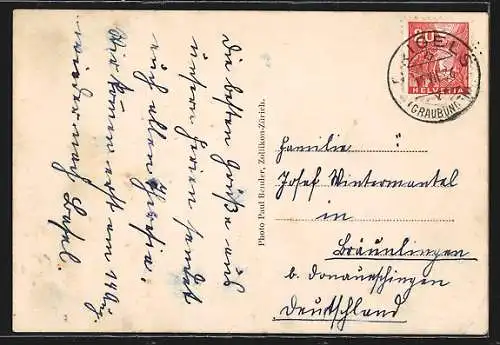 Die besten Grüße aus
unsern Ferien sendet
euch allen
Wir kommen erst am 14ten
wieder nach
Photo Paul Bender, Zollikon-Zürich.
20
HELVETIA
IGELS
(GRAUBÜND.)
Familie
Josef Wintermantel
in
Bräunlingen
b. Donaueschingen
Deutschland